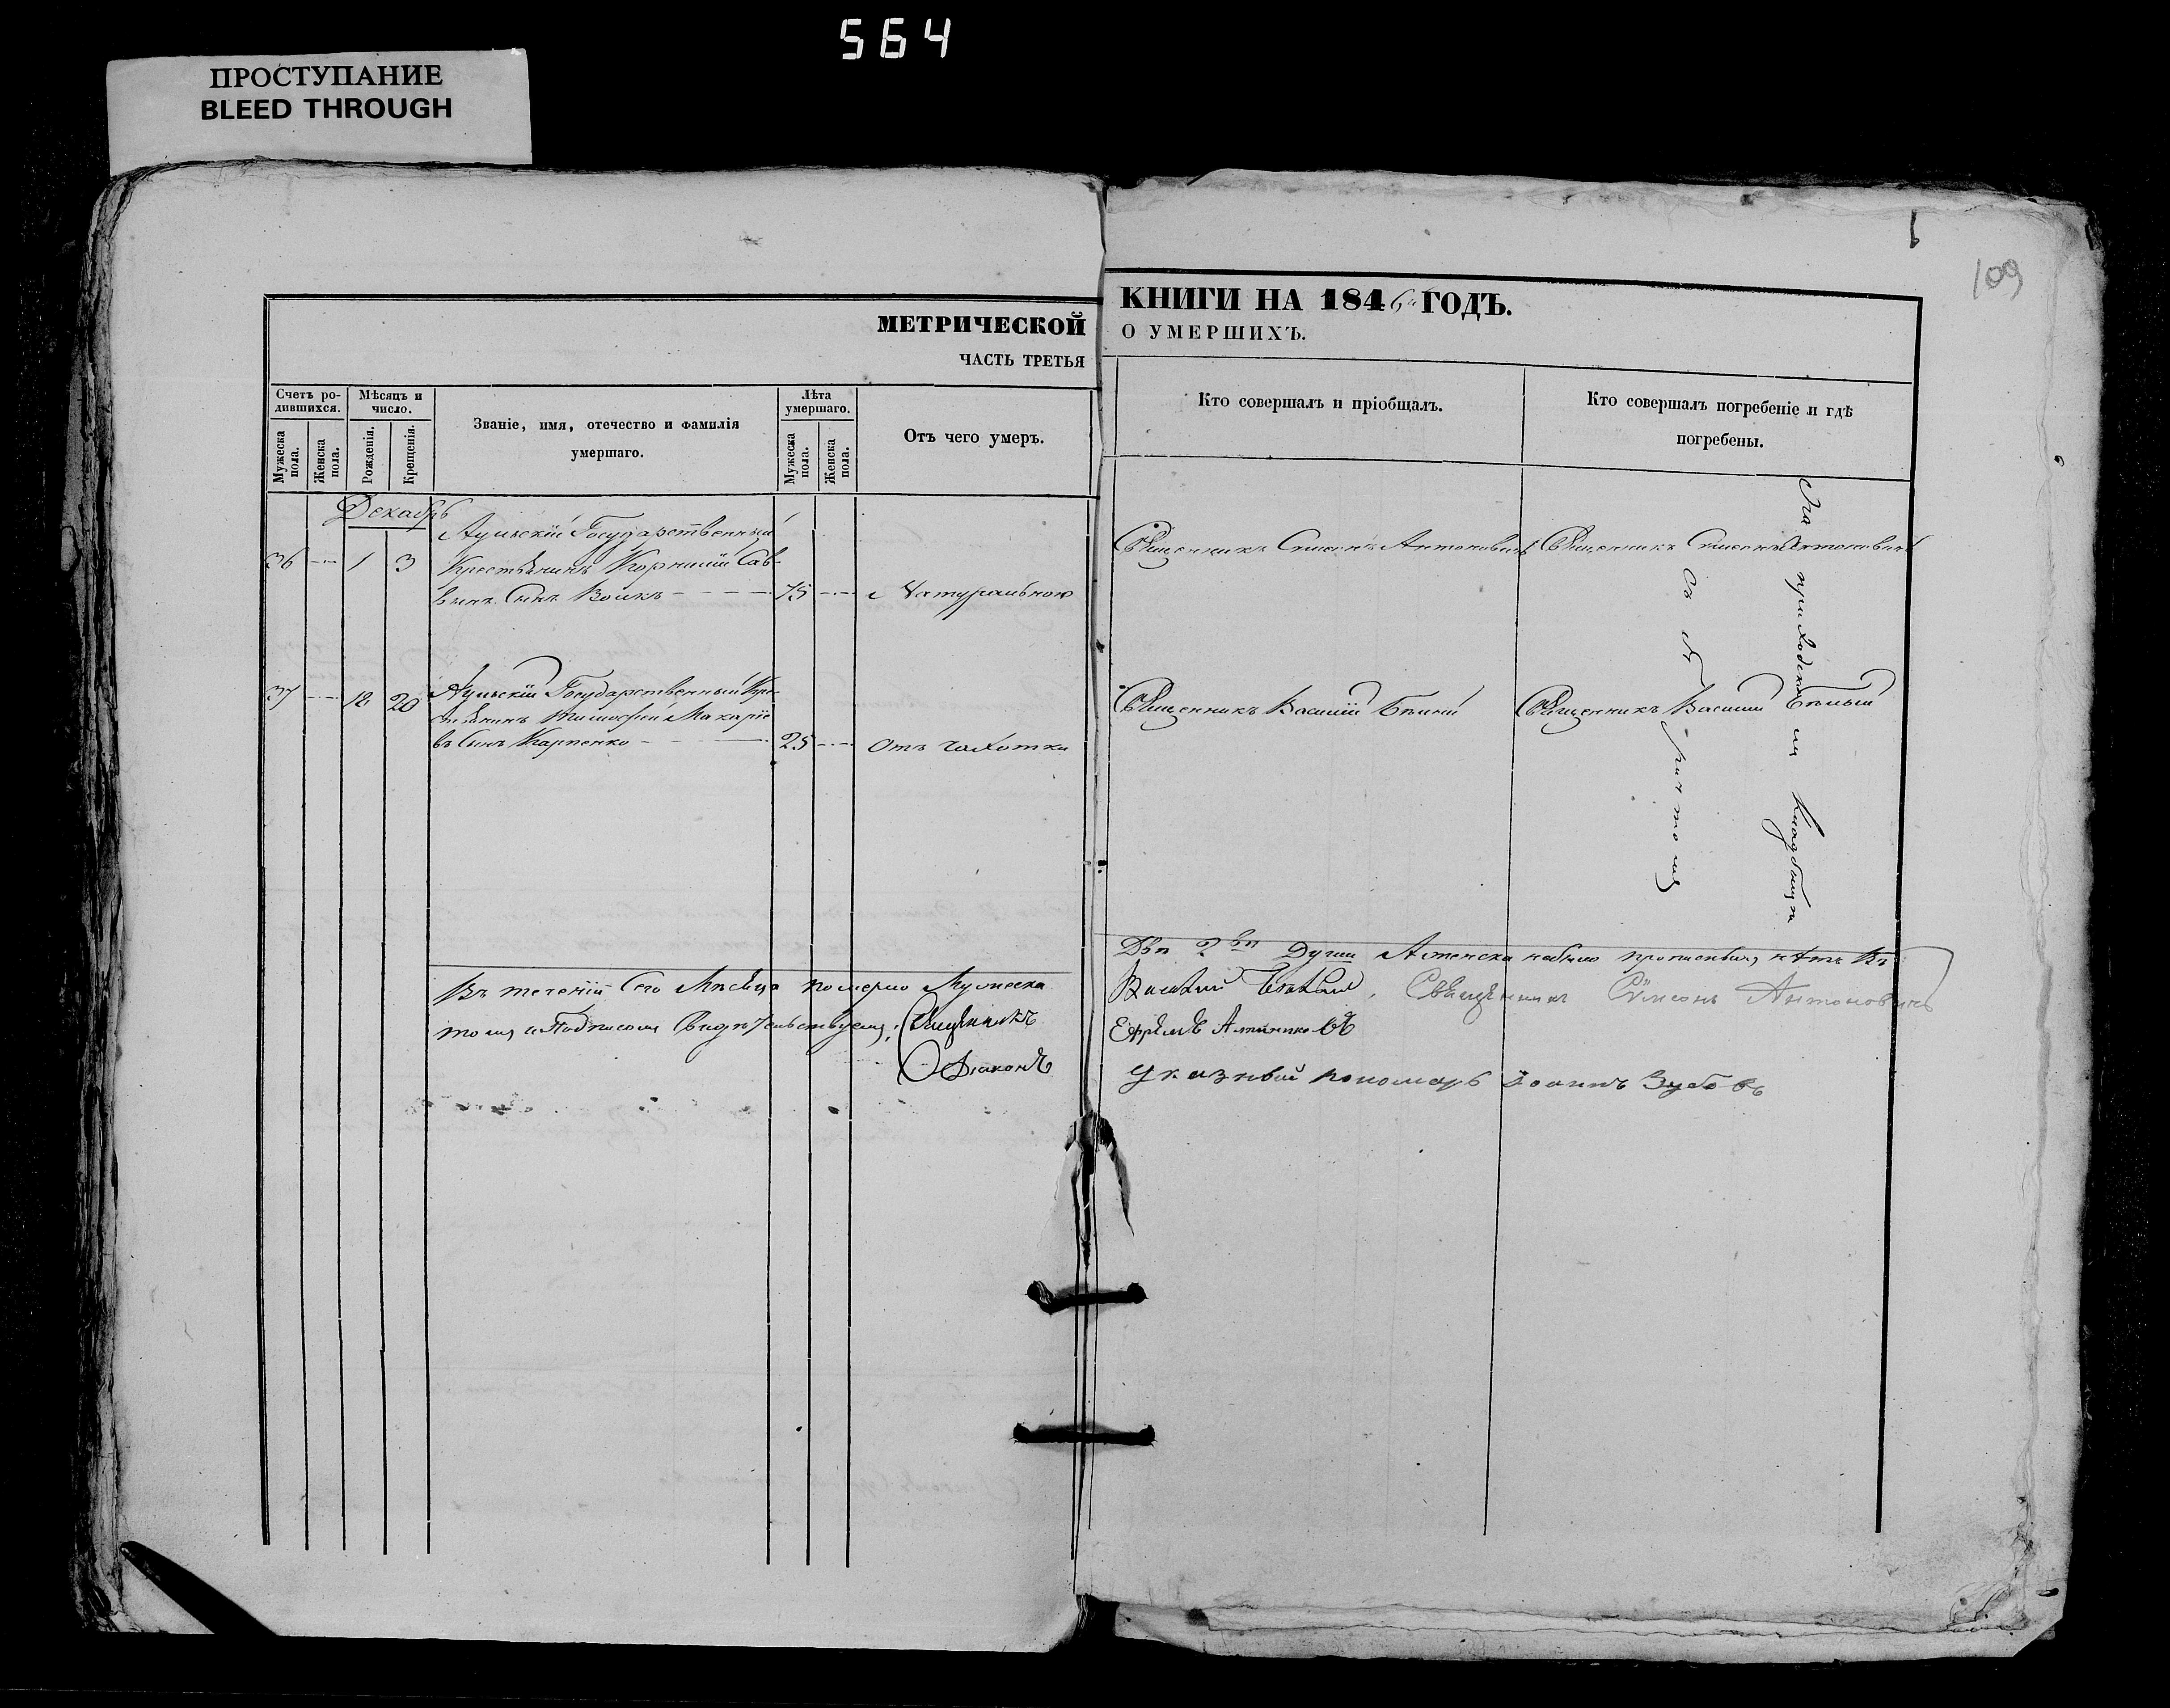 564
ПРОСТУПАНИЕ
BLEED THROUGH
109
МЕТРИЧЕСКОЙ
ЧАСТЬ ТРЕТЬЯ
КНИГИ НА 1846 ГОДЪ.
О УМЕРШИХЪ.
Счетъ родившихся.
Мужеска пола.
Женска пола.
Мѣсяцъ и число.
Рожденія.
Крещенія.
Званіе, имя, отечество и фамилія
умершаго.
Лѣта умершаго.
Мужеска пола.
Женска пола.
Отъ чего умеръ.
Кто совершалъ и пріобщалъ.
Кто совершалъ погребеніе и гдѣ
погребены.
Декабрь
Аульскій Государственный
36 1 3 Крестьянинъ Корнилій Сав-
винъ Сынъ Волкъ 75 Натуральною
Священникъ Сѵмеонъ Антоновичъ
Священникъ Сѵмеонъ Антоновичъ
37 18 20 Аульскій Государственный Кре-
стьянинъ Тимофей Макаріе-
въ Сынъ Карпенко 25 Отъ чахотки
Священникъ Василій Бѣлый
Священникъ Василій Бѣлый
На приходскомъ Кладбищѣ
Съ причтомъ
Въ теченіи Сего Мѣсяца померло Мужеска
Двѣ 2 Души А женска небыло
томъ и Подписомъ Свидѣтельствуемъ: Священникъ
Василій Бѣлый, Священникъ Сѵмеонъ Антоновичъ
Діаконъ
Ефремъ
Указный пономарь Іоаннъ Зубовъ